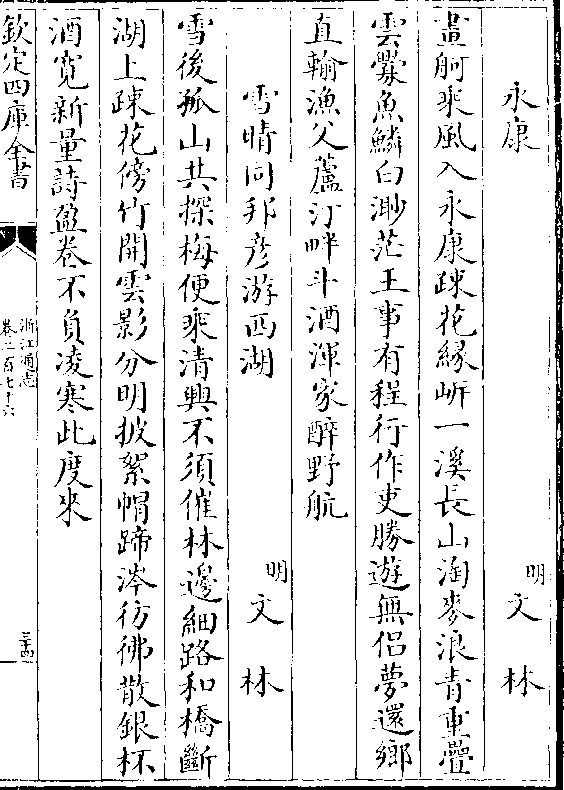 永康　明文林
畫舸乘風入永康疎花緣岍一溪長山淘麥浪青重疊
雲爨魚鱗白渺茫王事有程行作吏勝遊無侶夢還鄉
直輸漁父蘆汀畔斗酒渾家醉野航
雪晴同邦彦游西湖　明文林
雪後孤山共探梅便乘清興不須催林邊細路和橋斷
湖上疎花傍竹開雲影分明披絮帽蹄涔彷彿散銀杯
酒寛新量詩盈卷不負凌寒此度來
欽定四庫全書
浙江通志
卷二百七十六
三十四